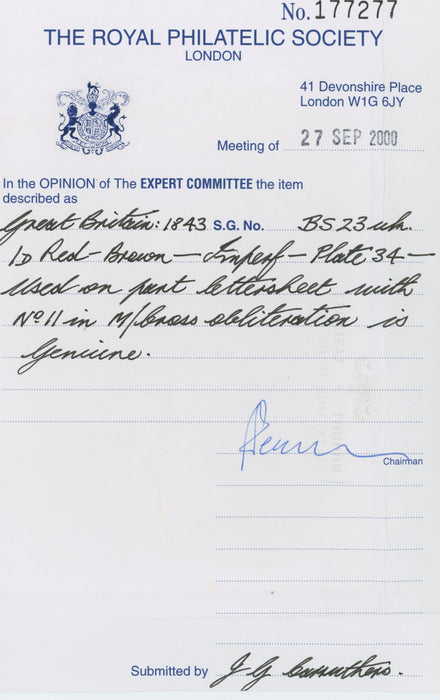 No. 177277
THE ROYAL PHILATELIC SOCIETY
LONDON
41 Devonshire Place
London W1G 6JY
Meeting of 27 SEP 2000
In the OPINION of The EXPERT COMMITTEE the item
described as
Great Britain: 1843 S.G. No. BS23uh.
1D Red-Brown — Imperf — Plate 34 —
Used on part lettersheet with
No 11 in M/Cross obliteration is
Genuine.
Chairman
Submitted by J G Carruthers.